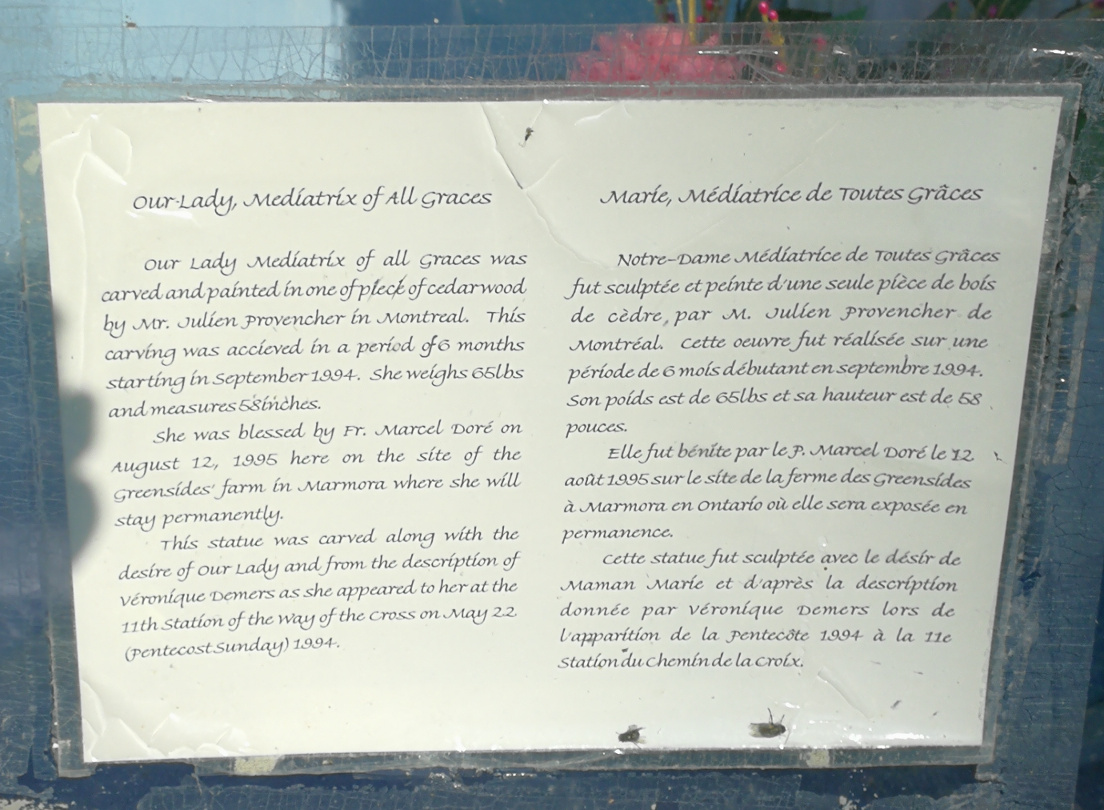 Our Lady, Mediatrix of All Graces
Our Lady Mediatrix of all Graces was
carved and painted in one of pieck of cedar wood
by Mr. Julien Provencher in Montreal. This
carving was accieved in a period of 6 months
starting in September 1994. She weighs 65lbs
and measures 58inches.
She was blessed by Fr. Marcel Doré on
August 12, 1995 here on the site of the
Greensides' farm in Marmora where she will
stay permanently.
This statue was carved along with the
desire of Our Lady and from the description of
Véronique Demers as she appeared to her at the
11th Station of the Way of the Cross on May 22
(Pentecost Sunday) 1994.
Marie, Médiatrice de Toutes Grâces
Notre-Dame Médiatrice de Toutes Grâces
fut sculptée et peinte d'une seule pièce de bois
de cèdre, par M. Julien Provencher de
Montréal. Cette oeuvre fut réalisée sur une
période de 6 mois débutant en septembre 1994.
Son poids est de 65lbs et sa hauteur est de 58
pouces.
Elle fut bénite par le P. Marcel Doré le 12
août 1995 sur le site de la ferme des Greensides
à Marmora en Ontario où elle sera exposée en
permanence.
Cette statue fut sculptée avec le désir de
Maman Marie et d'après la description
donnée par Véronique Demers lors de
l'apparition de la Pentecôte 1994 à la 11e
Station du Chemin de la Croix.